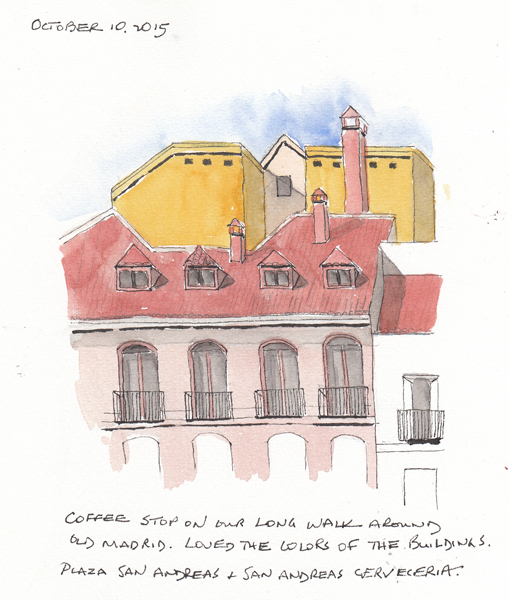 OCTOBER 10, 2015
COFFEE STOP ON OUR LONG WALK AROUND
OLD MADRID. LOVED THE COLORS OF THE BUILDINGS.
PLAZA SAN ANDREAS & SAN ANDREAS CERVECERIA.